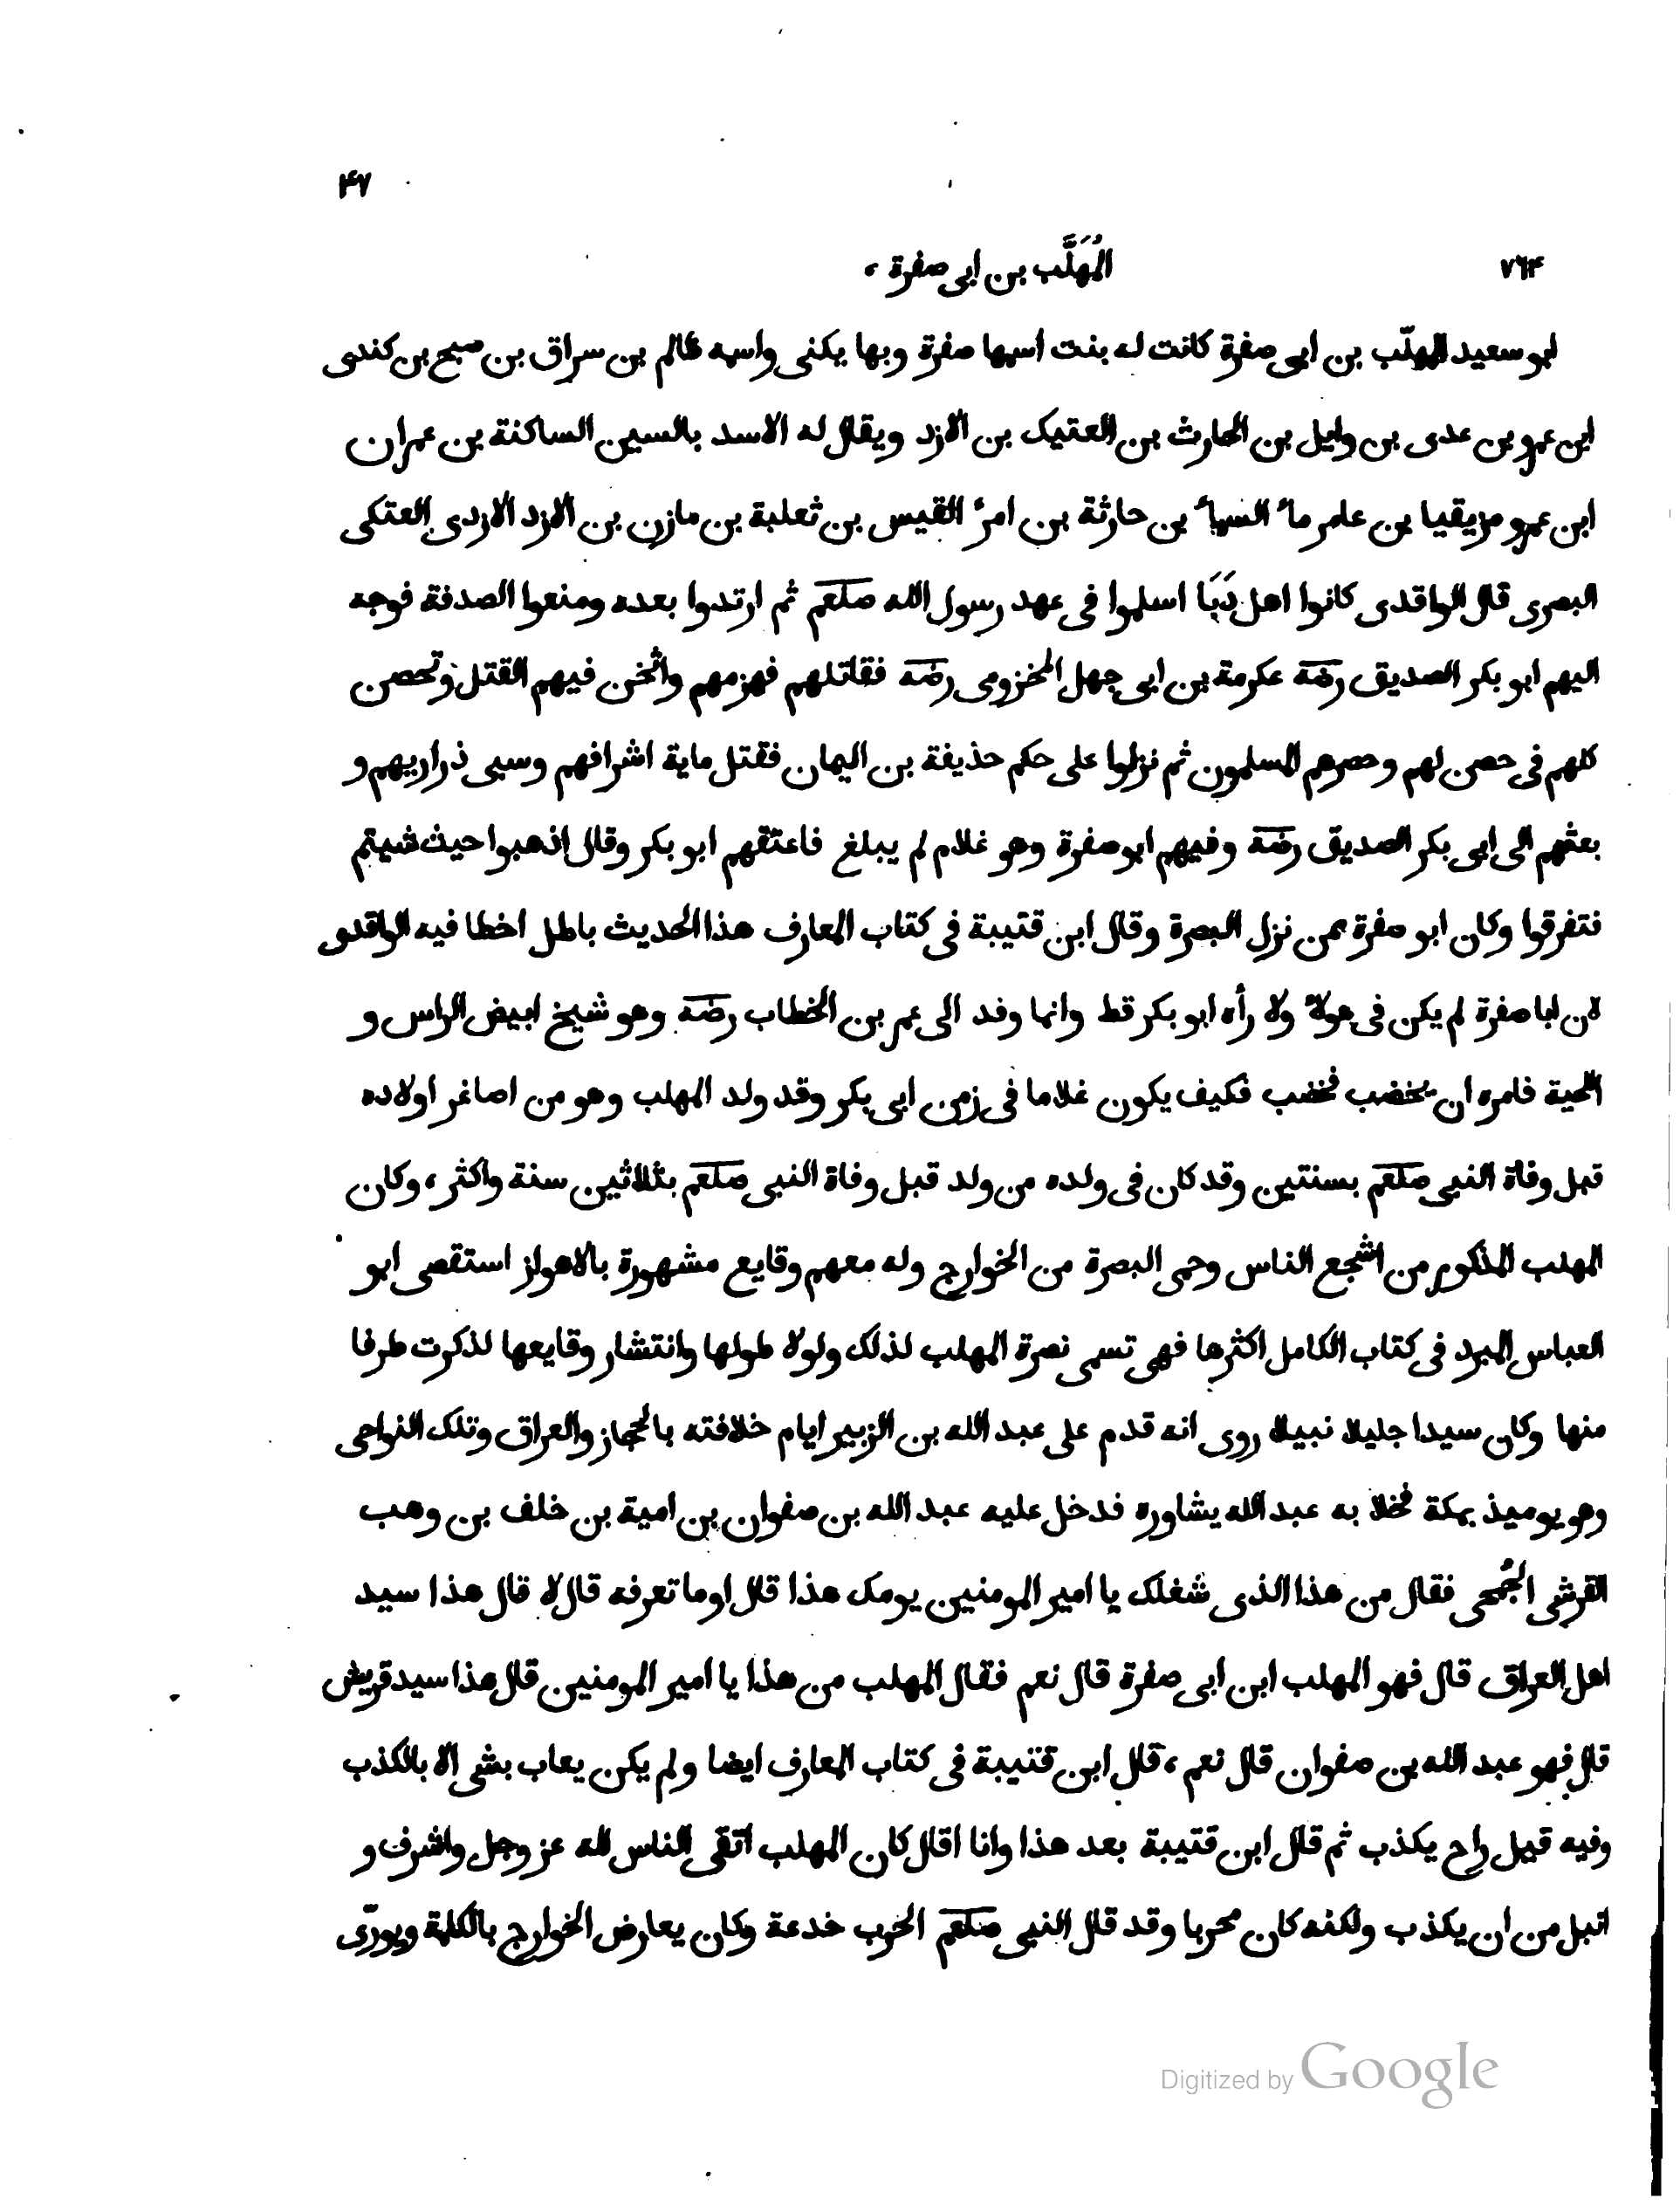 ۴۷
۷۶۴ المُهَلَّب بن ابى صفرة ،
ابو سعيد المهلّب بن ابى صفرة كانت له بنت اسمها صفرة وبها يكنى واسمه ظالم بن سراق بن صبح بن كندى
ابن عمرو بن عدى بن وايل بن الحارث بن العتيك بن الازد ويقال له الاسد بالسين الساكنة بن عمران
ابن عمرو مزيقيا بن عامر ماء السماء بن حارثة بن امرء القيس بن ثعلبة بن مازن بن الازد الازدى العتكى
البصرى قال الواقدى كانوا اهل دَبَا اسلموا فى عهد رسول الله صلعم ثم ارتدوا بعده ومنعوا الصدقة فوجه
اليهم ابو بكر الصديق رضه عكرمة بن ابى جهل المخزومى رضه فقاتلهم فهزمهم واثخن فيهم القتل وتحصن
كلهم فى حصن لهم وحصرهم المسلمون ثم نزلوا على حكم حذيفة بن اليمان فقتل ماية اشرافهم وسبى ذراريهم و
بعثهم الى ابى بكر الصديق رضه وفيهم ابو صفرة وهو غلام لم يبلغ فاعتقهم ابو بكر وقال اذهبوا حيث شيتم
فتفرقوا وكان ابو صفرة ممن نزل البصرة وقال ابن قتيبة فى كتاب المعارف هذا الحديث باطل اخطا فيه الواقدى
لان ابا صفرة لم يكن فى هولاء ولا رأه ابو بكر قط وانما وفد الى عمر بن الخطاب رضه وهو شيخ ابيض الراس و
اللحية فامره ان يخضب فخضب فكيف يكون غلاما فى زمن ابى بكر وقد ولد المهلب وهو من اصاغر اولاده
قبل وفاة النبى صلعم بسنتين وقد كان فى ولده من ولد قبل وفاة النبى صلعم بثلاثين سنة واكثر ، وكان
المهلب المذكور من اشجع الناس وحمى البصرة من الخوارج وله معهم وقايع مشهورة بالاهواز استقصى ابو
العباس المبرد فى كتاب الكامل اكثرها فهى تسمى نصرة المهلب لذلك ولولا طولها وانتشار وقايعها لذكرت طرفا
منها وكان سيدا جليلا نبيلا روى انه قدم على عبد الله بن الزبير ايام خلافته بالحجاز والعراق وتلك النواحى
وهو يوميذ بمكة فخلا به عبد الله يشاوره فدخل عليه عبد الله بن صفوان بن امية بن خلف بن وهب
القرشى الجُمحى فقال من هذا الذى شغلك يا امير المومنين يومك هذا قال اوما تعرفه قال لا قال هذا سيد
اهل العراق قال فهو المهلب ابن ابى صفرة قال نعم فقال المهلب من هذا يا امير المومنين قال هذا سيد قريش
قال فهو عبد الله بن صفوان قال نعم ، قال ابن قتيبة فى كتاب المعارف ايضا ولم يكن يعاب بشى الا بالكذب
وفيه قيل راح يكذب ثم قال ابن قتيبة بعد هذا وانا اقال كان المهلب اتقى الناس لله عز وجل واشرف و
انبل من ان يكذب ولكنه كان محربا وقد قال النبى صلعم الحرب خدعة وكان يعارض الخوارج بالكلمة ويورّى
Digitized by Google